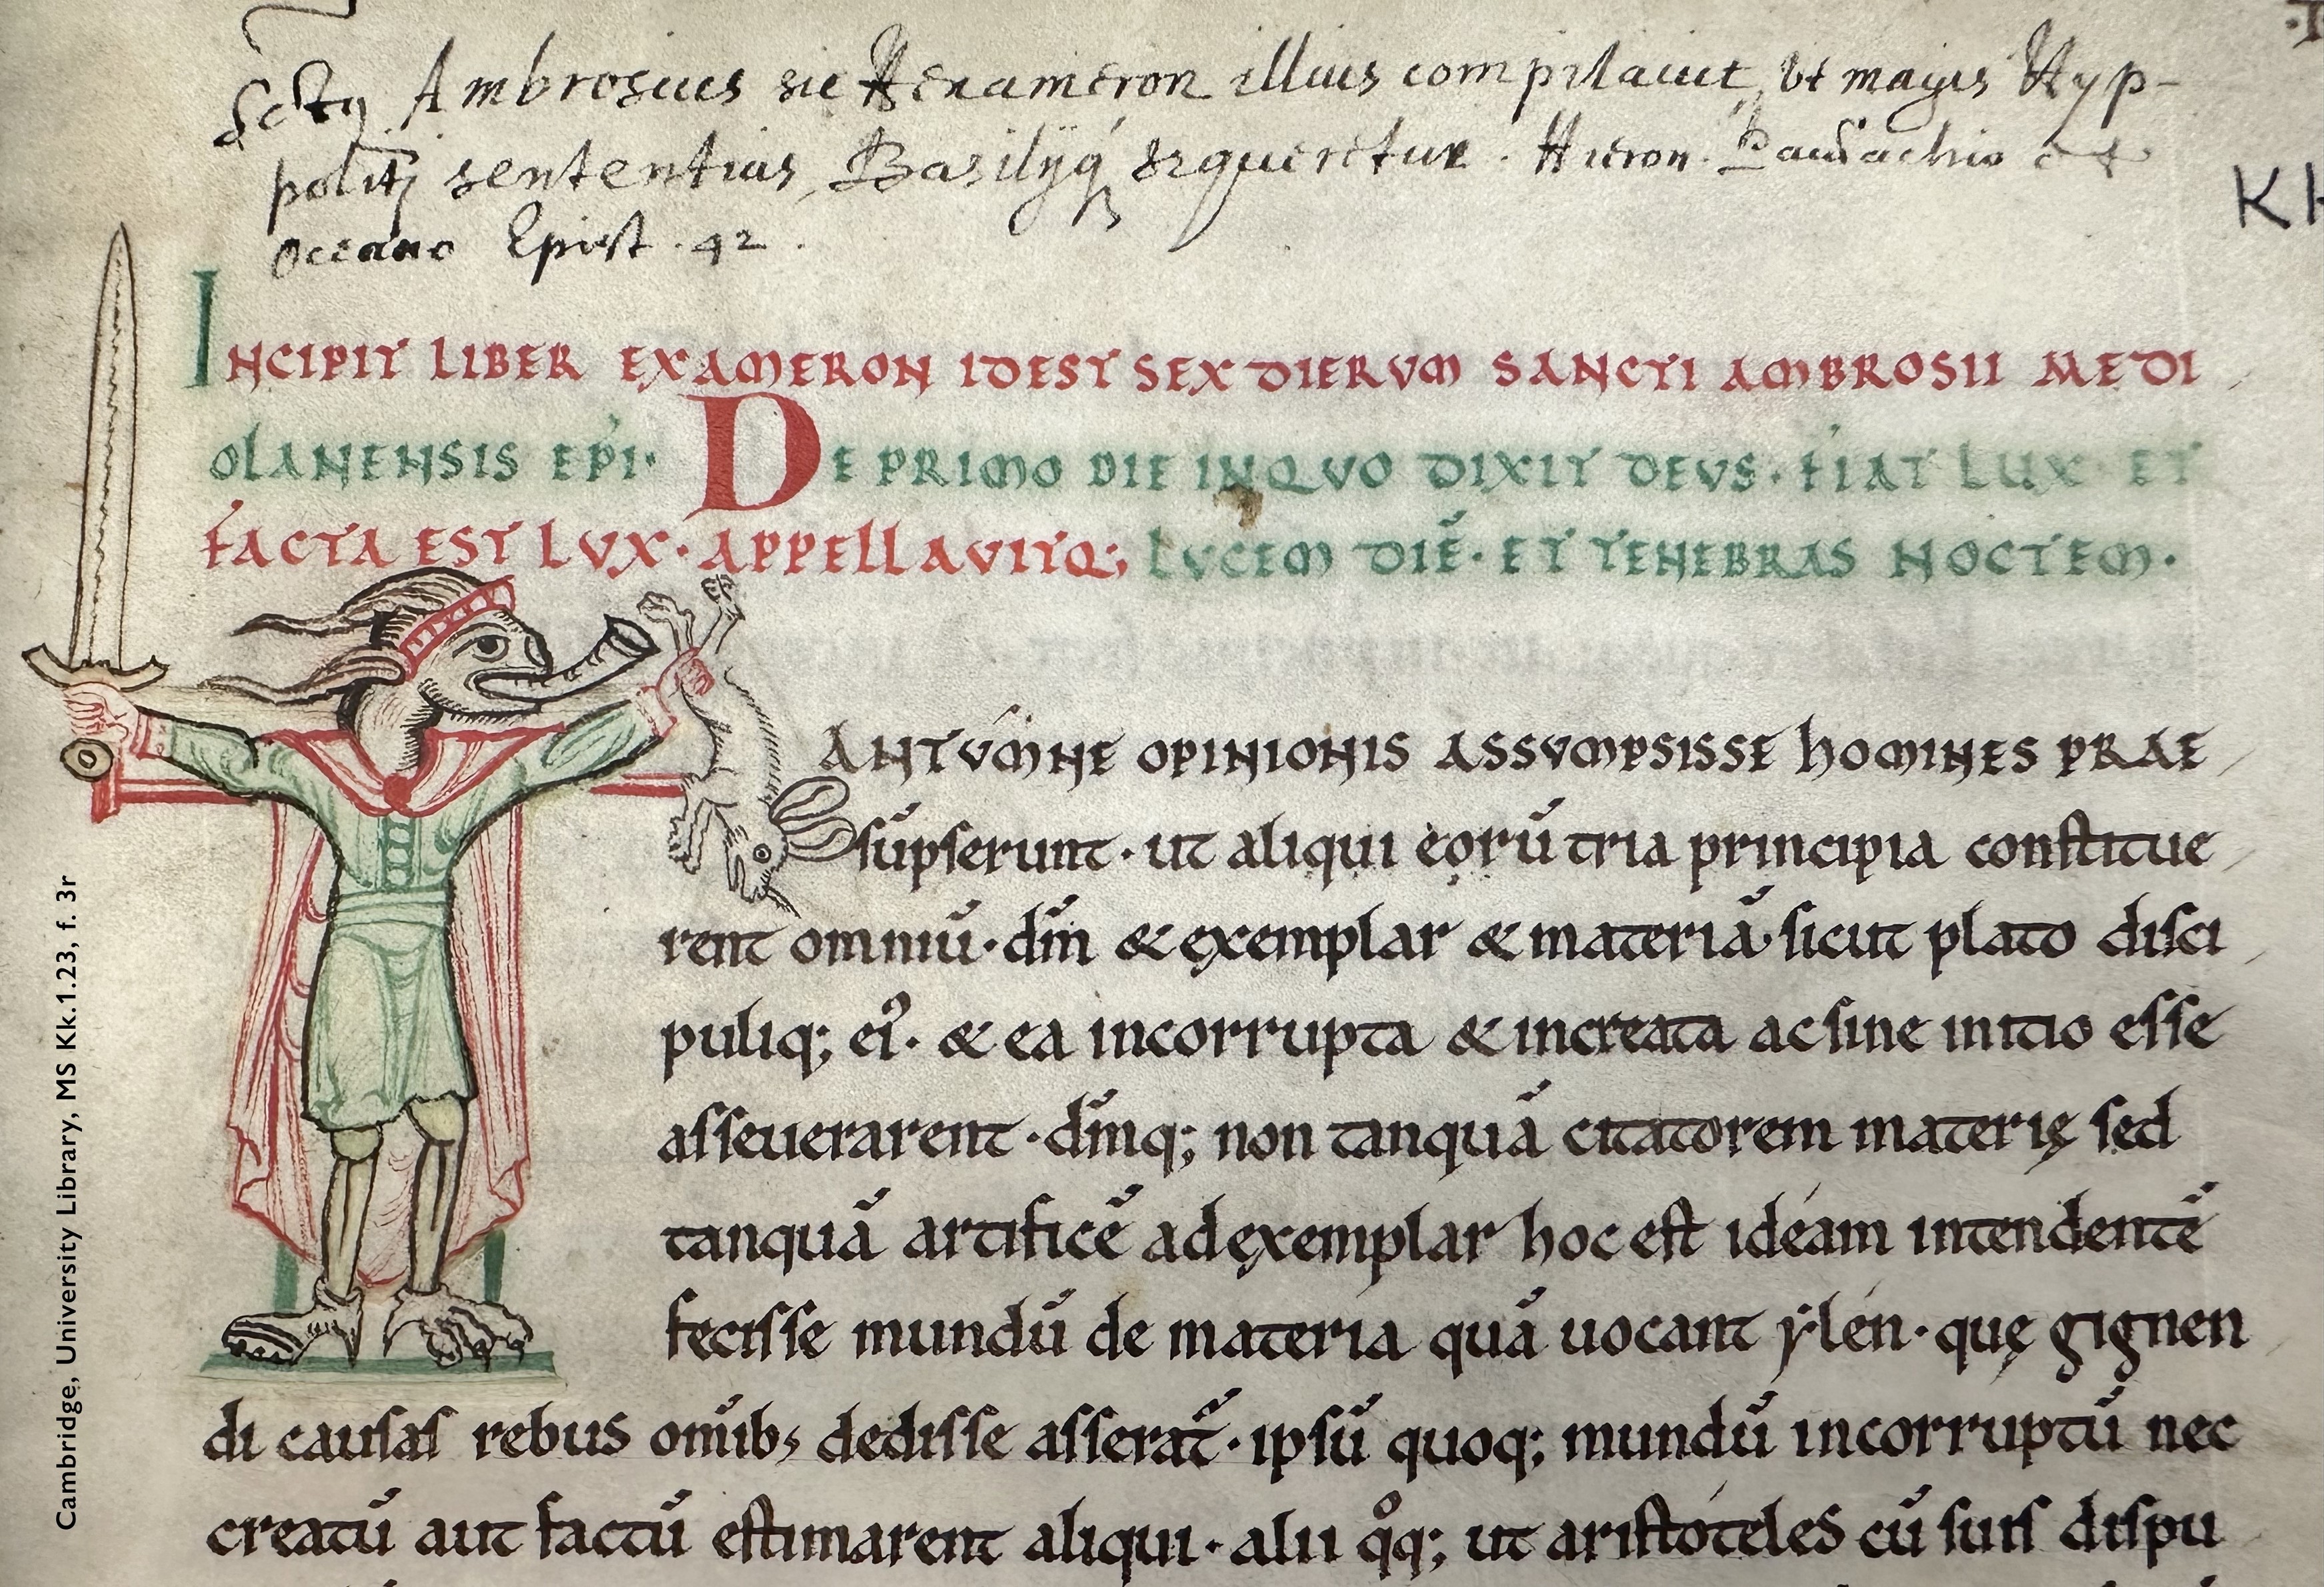 Sctus Ambrosius sic Hexameron illius compilauit, vt magis Hyp-
politj sententias, Basilijq; sequeretur. Hieron. Pammachio et
Oceano Epist. 42.
KK
INCIPIT LIBER EXAMERON IDEST SEX DIERVM SANCTI AMBROSII MEDI
OLANENSIS EPI· DE PRIMO DIE INQVO DIXIT DEVS· FIAT LUX ET
FACTA EST LVX· APPELLAVITQ; LVCEM DIĒ· ET TENEBRAS NOCTEM·
ANTVMNE OPINIONIS ASSVMPSISSE HOMINES PRAE
sūpserunt· ut aliqui eorū tria principia constitue
rent omniū· dm̄ & exemplar & materiā· sicut plato disci
puliq; ei᾽· & ea incorrupta & increata ac sine initio esse
asseuerarent· dm̄q; non tanquā citatorem materię sed
tanquā artificē ad exemplar hoc est idéam intendentē
fecisse mundū de materia quā uocant ẏlén· quę gignen
di causas rebus om̄ib; dedisse asserat̄· ipsū quoq; mundū incorruptū nec
creatū aut factū estimarent aliqui· alii qͦq; ut aristóteles cū suis dispu
Cambridge, University Library, MS Kk.1.23, f. 3r